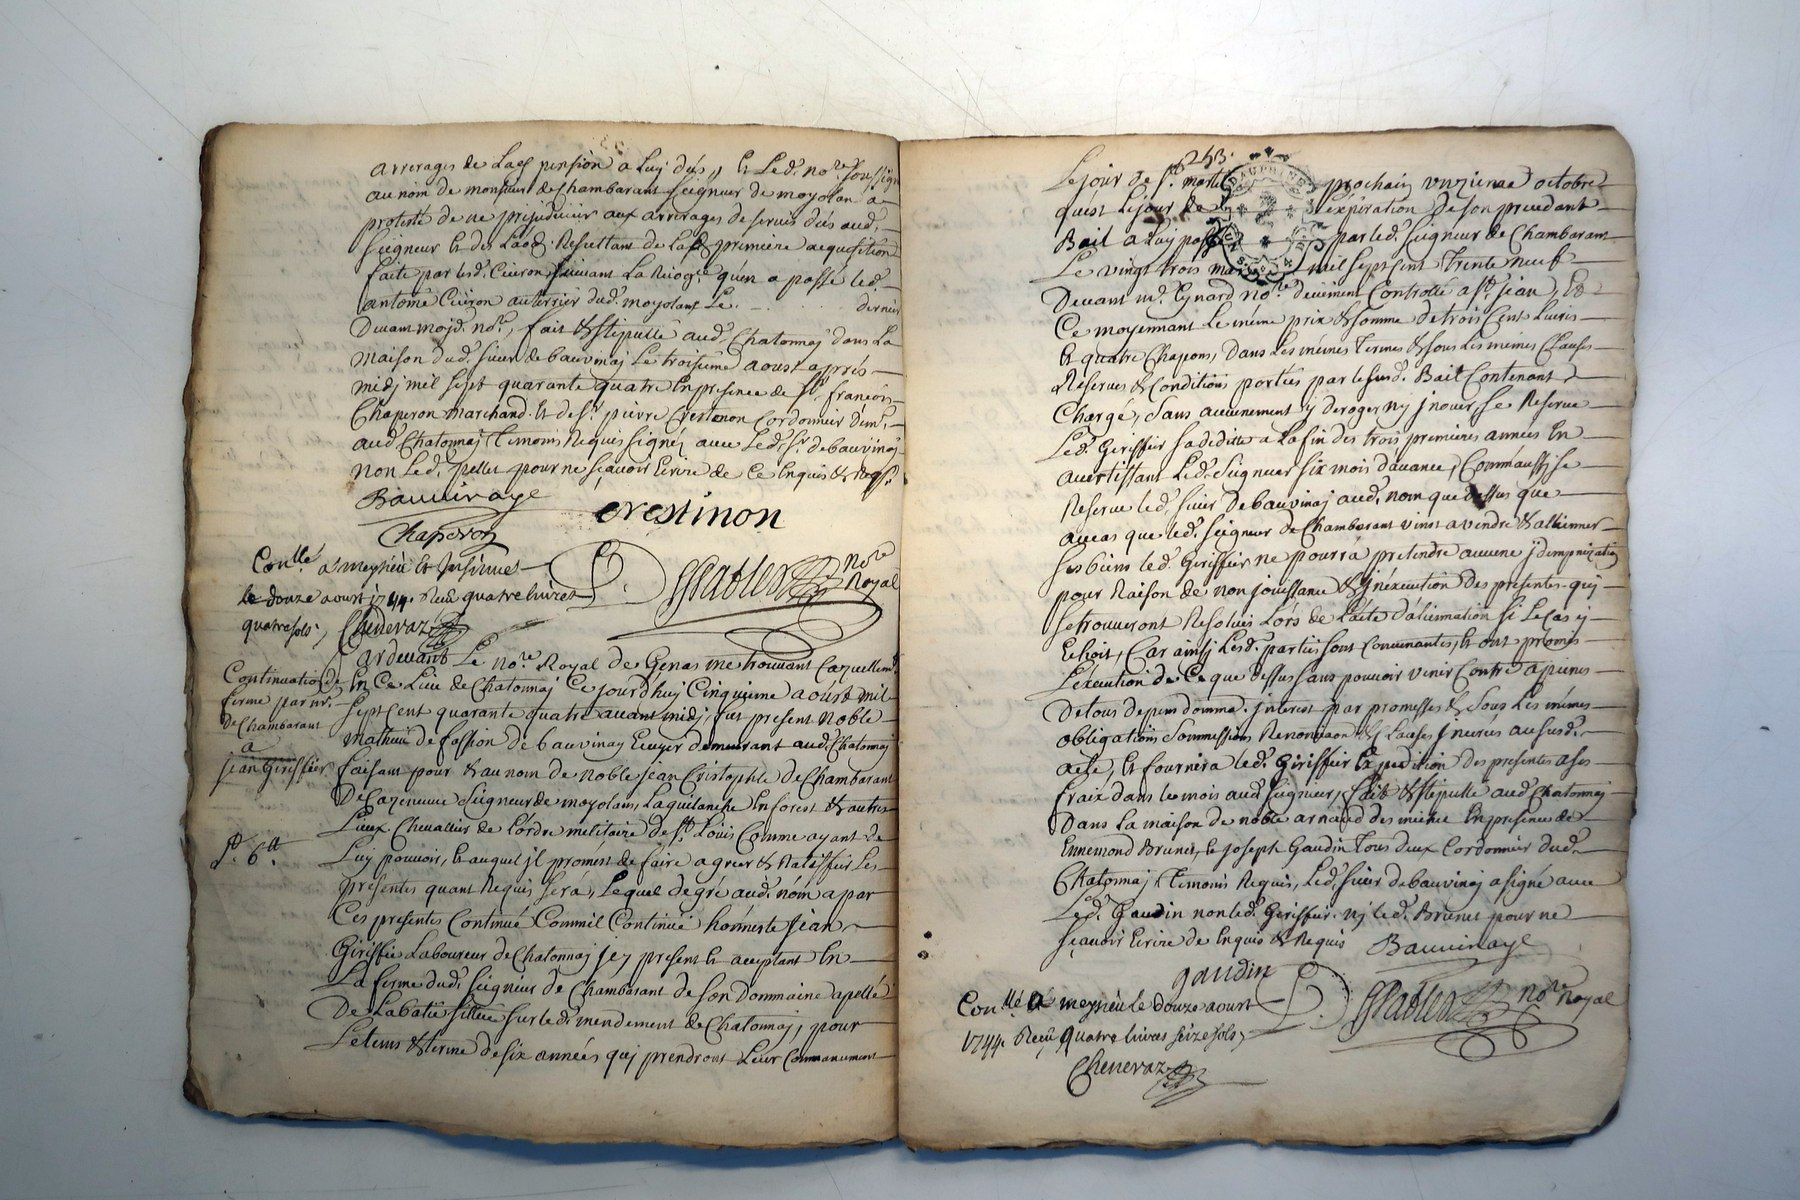 arrerages de lad. pension a luy dus, & led. no.re soussigné
au nom de monsieur de Chambarant seigneur de moyolan a
protesté de ne prejudicier aux arrerages de servis dus aud.
seigneur & des Laods Resultant de lad. premiere acquisition
faite par led. Ciceron, suivant La Recog.ce qu'en a passé led.
antoine Ciceron au terrier dud. moyolans Le dernier
Devant moyd. no.re, fait & stipullé aud. Chatonnay dans La
maison dud. sieur de bauvinay Le troisieme aoust apres
midy mil sept quarante quatre En presence de s.r françois
Chaperon marchand & de s.r pierre Crestinon Cordonnier dem.t
aud. Chatonnay Temoins Requis signés avec Led. s.r de bauvinay
non Led. pellet pour ne sçavoir Ecrire de Ce Enquis & Reqs.
Bauvinaye
crestinon
Chaperon
Con.llé a meyrieu & Insinué
le douze aoust 1744. Reçu quatre livres
quatre sols, Chenevaz
no.re Royal
Pardevant Le no.re Royal de Genas me trouvant Cazuellem.t
En Ce Lieu de Chatonnay Ce jourd'huy Cinquieme aoust mil
sept Cent quarante quatre avant midy, fut present Noble
mathieu de fassion de bauvinay Ecuyer demeurant aud. Chatonnay
faisant pour & au nom de noble jean Cristophle de Chambarant
De Cazeneuve seigneur de moyolans, Laquilanche En forest & autres
Lieux Chevallier de L'ordre militaire de s.t Louis Comme ayant de
Luy pouvoir, & auquel jl promest de faire agreer & Ratiffier Les
presentes quant Requis sera, Lequel de gré aud. nom a par
Ces presentes Continué Comm'il Continue honneste jean
Giriffier Laboureur de Chatonnay jcy present & acceptant En
La ferme dud. seigneur de Chambarant de son Dommaine apellé
De Labatie sittué sur led. mendement de Chatonnay, pour
Le tems & terme de six années quy prendront Leur Commancement
Continuation de
ferme par mr.
de Chambarant
a
jean Giriffier
p.r 6 tt
243.
Le jour de s.t martin prochain unzieme octobre
qu'est Le jour de L'expiration De son precedant
Bail a Luy passé par led. seigneur de Chambarant
Le vingt trois mars mil sept Cent Trente neuf
Devant m.e Eynard no.re deüement Controllé a s.t jean, &
Ce moyennant Le même prix & somme De trois Cent Livres
& quatre Chapons, Dans Les mêmes Termes & sous Les memes Clauses
Reserves & Conditions portées par le susd. Bail Contenant
Chargé, sans aucunement y deroger ny jnover se Reserve
Led. Giriffier sa deditte a La fin des trois premieres années En
avertissant Led. seigneur six mois d'avance, Comm'aussy se
Reserve led. sieur de bauvinay aud. nom que dessus que
au cas que led. seigneur de Chambarant vint a vendre & alliener
ses biens led. Giriffier ne pourra pretendre aucune jdempnization
pour Raison de non jouissance & jnexecution Des presentes quy
se trouveront Resolues Lors de L'acte d'alienation si Le Cas y
Echoit, Car ainsy Lesd. parties sont Convenantes, & ont promis
L'execution de Ce que dessus sans pouvoir venir Contre a peines
De tous depens domma. jnterest par promesses & sous Les mêmes
obligations soummissions Renonciaons & Clauses jnserées au susd.
acte, & fournira led. Giriffier Expedition des presentes a ses
fraix dans le mois aud. seigneur, fait & stipullé aud. Chatonnay
Dans la maison de noble arnaud des miéres En presence de
Ennemond Brunet, & joseph Gaudin Tous deux Cordonnier dud.
Chatonnay, Temoins Requis, Led. sieur de bauvinay a signé avec
Led. Gaudin non led. Giriffier, ny led. Brunet pour ne
sçavoir Ecrire de Enquis & Requis
Bauvinaye
gaudin
no.re royal
Con.llé a meyrieu le douze aoust
1744. Reçu Quatre livres seize sols,
Chenevaz